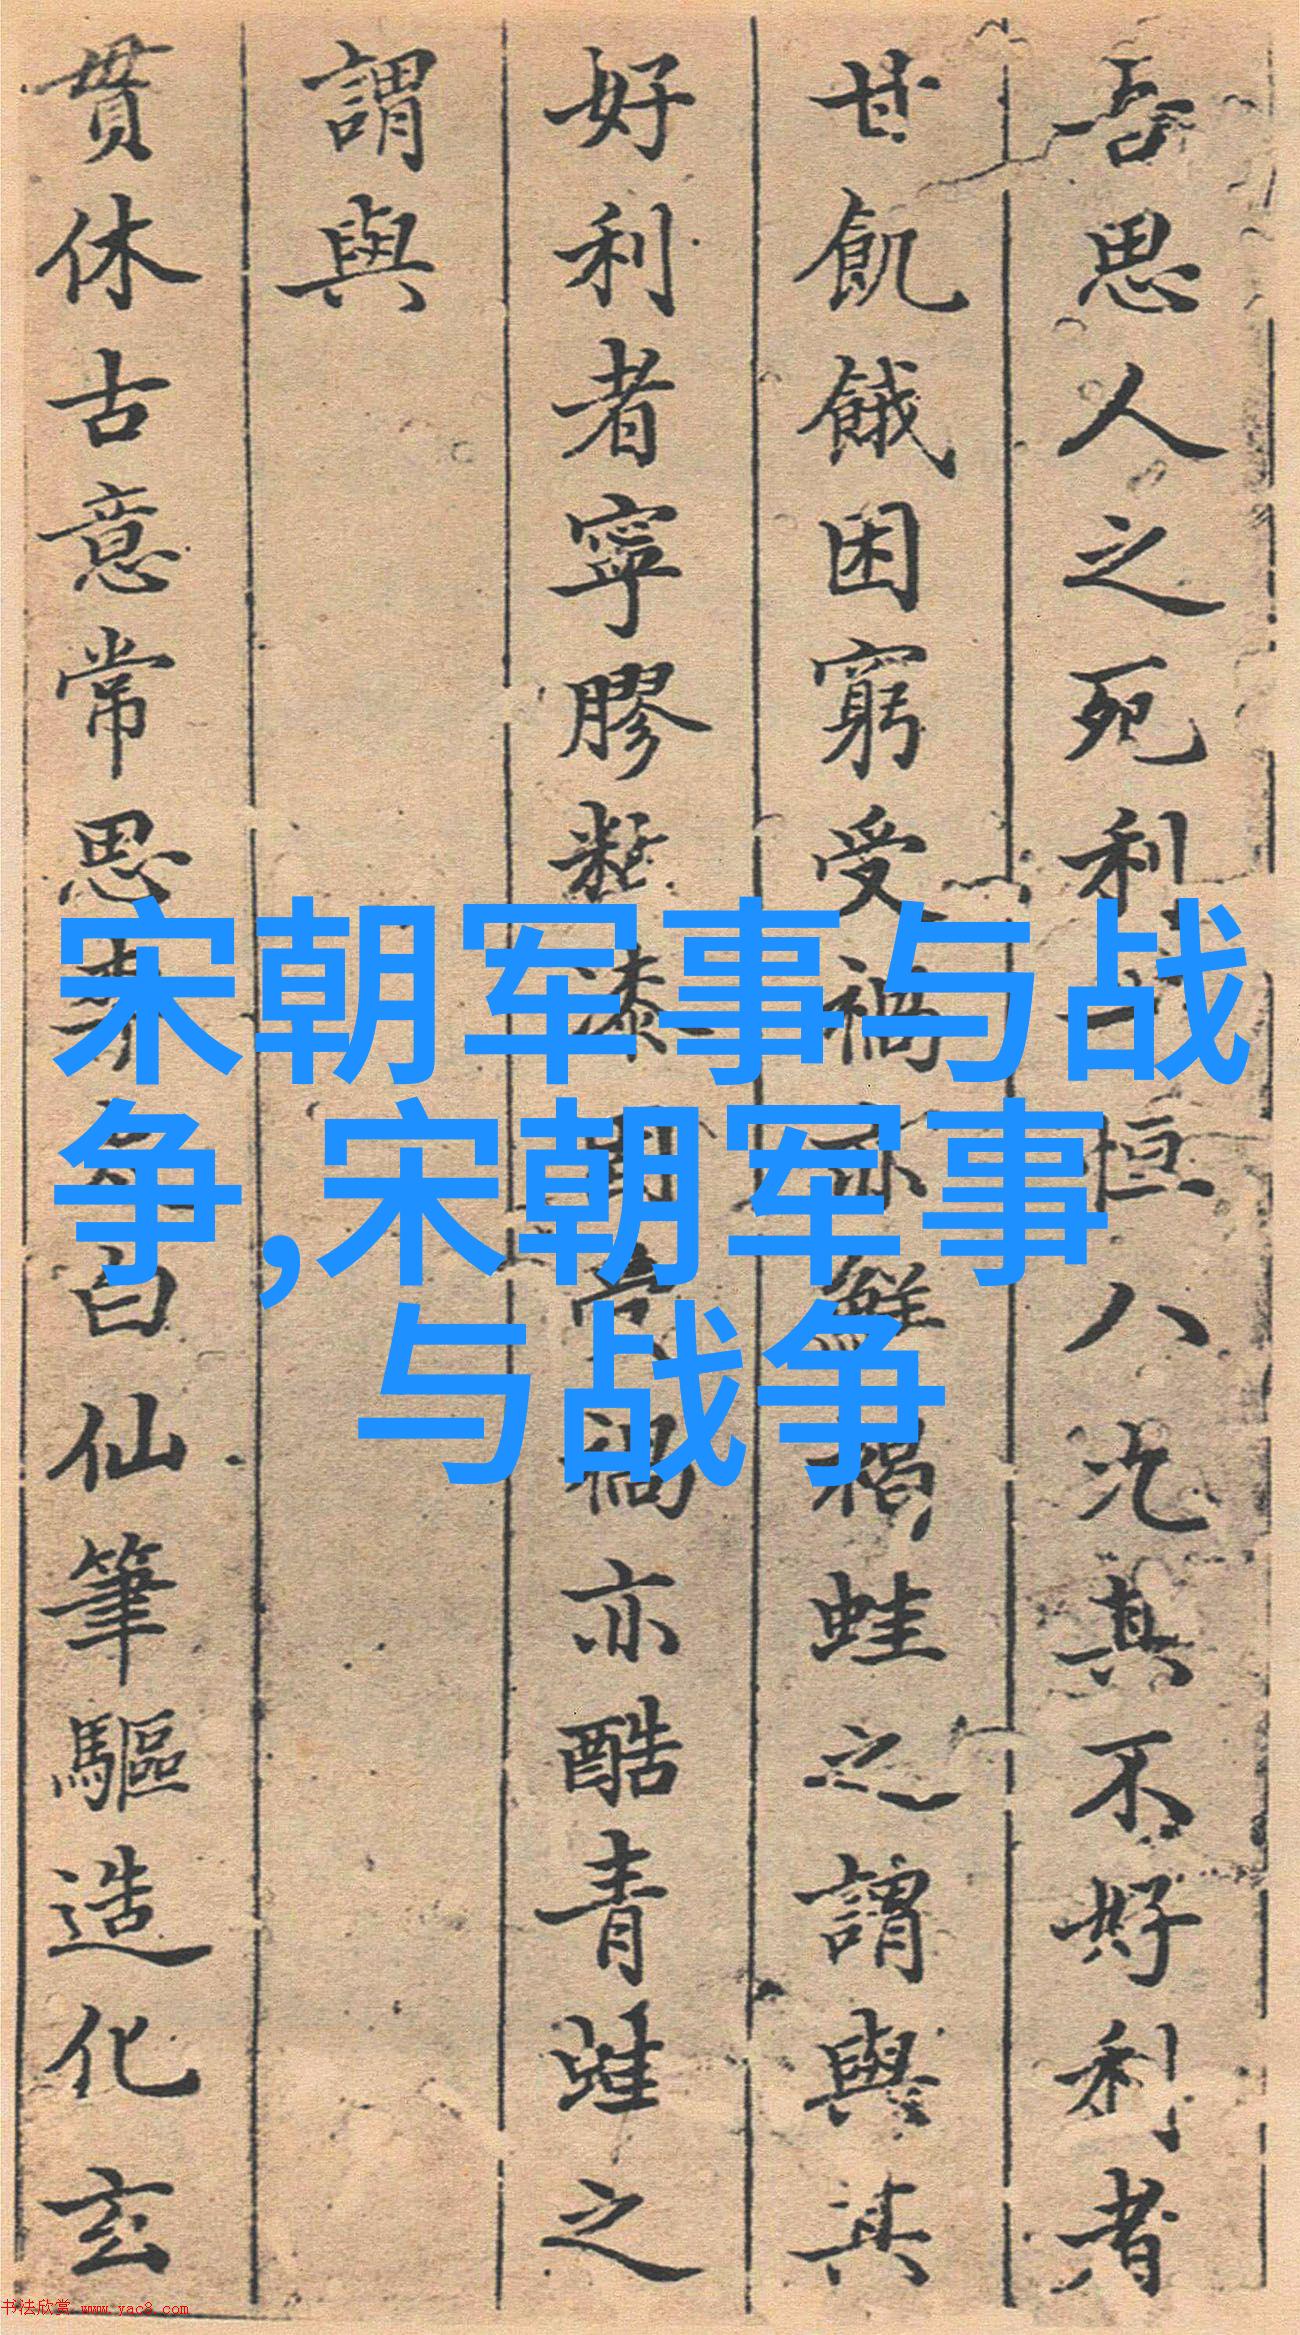 吾思人之死利恒八九其不好利者
甘飢餓困窮受禍亦鮮稱蛙之謂與其
好利者寧膠粘漆固吾禍亦酷青蛙之
謂與
貫休古意常思李太白仙筆驅造化玄
宋朝军事与战
争,宋朝军事
与战争
书法欣赏 www.yac8.com